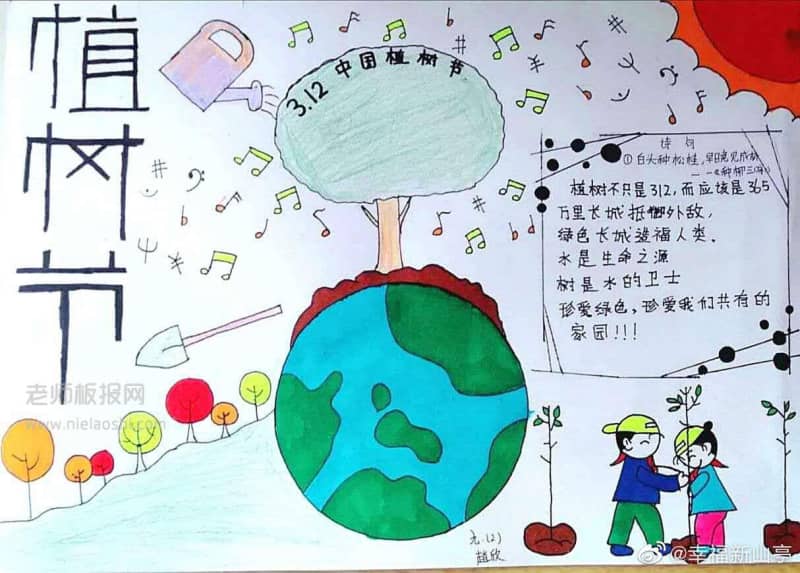 植树节
3.12 中国植树节
诗句
①白头种松桂,早晚见成林
植树不只是312,而应该是365
万里长城抵御外敌,
绿色长城造福人类.
水是生命之源
树是水的卫士
珍爱绿色,珍爱我们共有的
家园!!!
老师板报网
www.nielaoshi.com
赵欣
@幸福新山亭